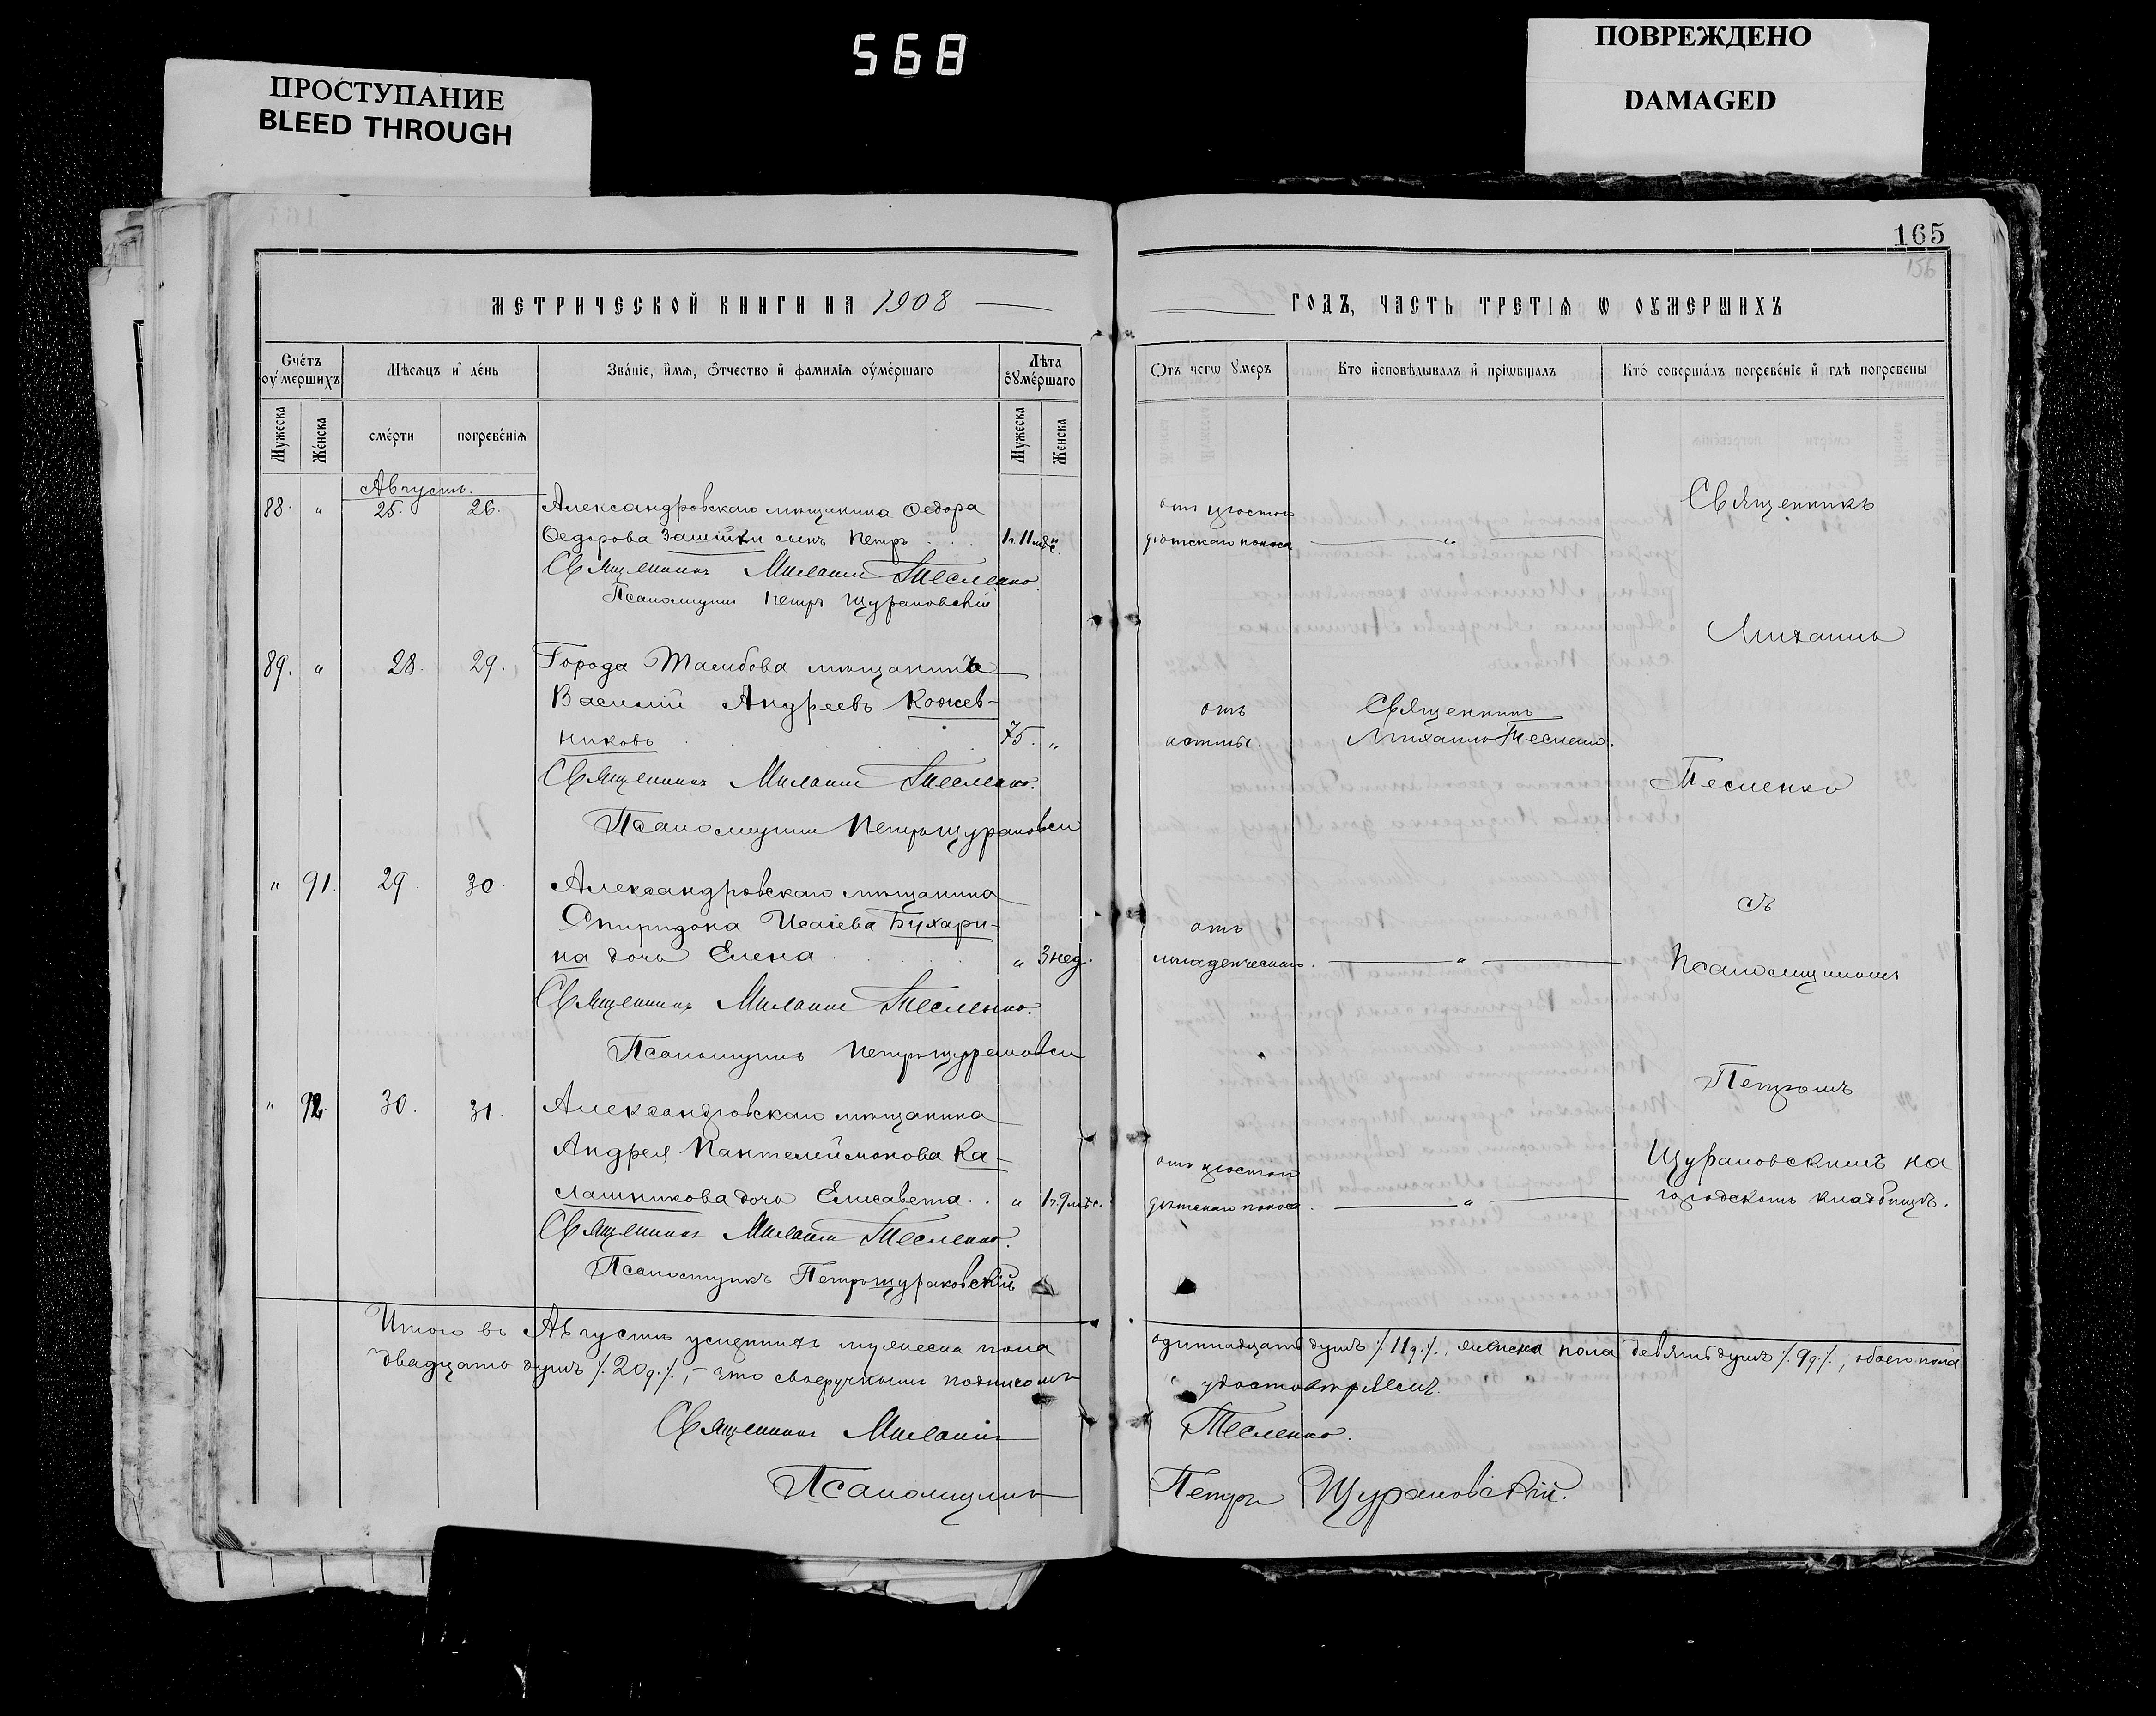 568
ПРОСТУПАНИЕ
BLEED THROUGH
ПОВРЕЖДЕНО
DAMAGED
165
156
МЕТРИЧЕСКОЙ КНИГИ НА 1908
ГОДЪ, ЧАСТЬ ТРЕТІЯ Ѡ ОУМЕРШИХЪ
Счетъ оумершихъ
Мѣсяцъ и день
Званіе, имя, отчество и фамилія оумершаго
Лѣта оумершаго
Отъ чегѡ умеръ
Кто исповѣдывалъ и пріѡбщалъ
Кто совершалъ погребеніе и гдѣ погребены
Мужеска
Женска
смерти
погребенія
Мужеска
Женска
Августъ.
88. " 25. 26. Александровскаго мѣщанина Ѳедора
Ѳедорова сынъ Петръ 1 г. 11 мѣс.
отъ
дѣтскаго поноса "
Священникъ
Священникъ Михаилъ Тесленко
Псаломщикъ Петръ Щурановскій
Михаилъ
89. " 28. 29. Города Тамбова мѣщанинъ
Василій Андреевъ Кожев-
никовъ 75. "
отъ
астмы.
Священникъ
Михаилъ Тесленко.
Священникъ Михаилъ Тесленко.
Тесленко
Псаломщикъ Петръ Щурановскій
" 91. 29. 30. Александровскаго мѣщанина
Спиридона Исаіева Бухари-
на дочь Елена " 3 нед.
отъ
младенческаго. "
съ
Псаломщикомъ
Священникъ Михаилъ Тесленко.
Псаломщикъ Петръ Щурановскій
Петромъ
" 92. 30. 31. Александровскаго мѣщанина
Андрея Пантелеймонова Ка-
лашникова дочь Елисавета. " 1 г. 9 мѣс.
отъ
дѣтскаго поноса. "
Щурановскимъ на
городскомъ кладбищѣ.
Священникъ Михаилъ Тесленко.
Псаломщикъ Петръ Щурановскій
Итого въ Августѣ усопшихъ мужеска пола
одиннадцать душъ /. 11 д. /., женска пола девять душъ /. 9 д. /., обоего пола
двадцать душъ /. 20 д. /., что своеручнымъ подписомъ
удостовѣряемъ.
Священникъ Михаилъ
Тесленко.
Псаломщикъ
Петръ Щурановскій.